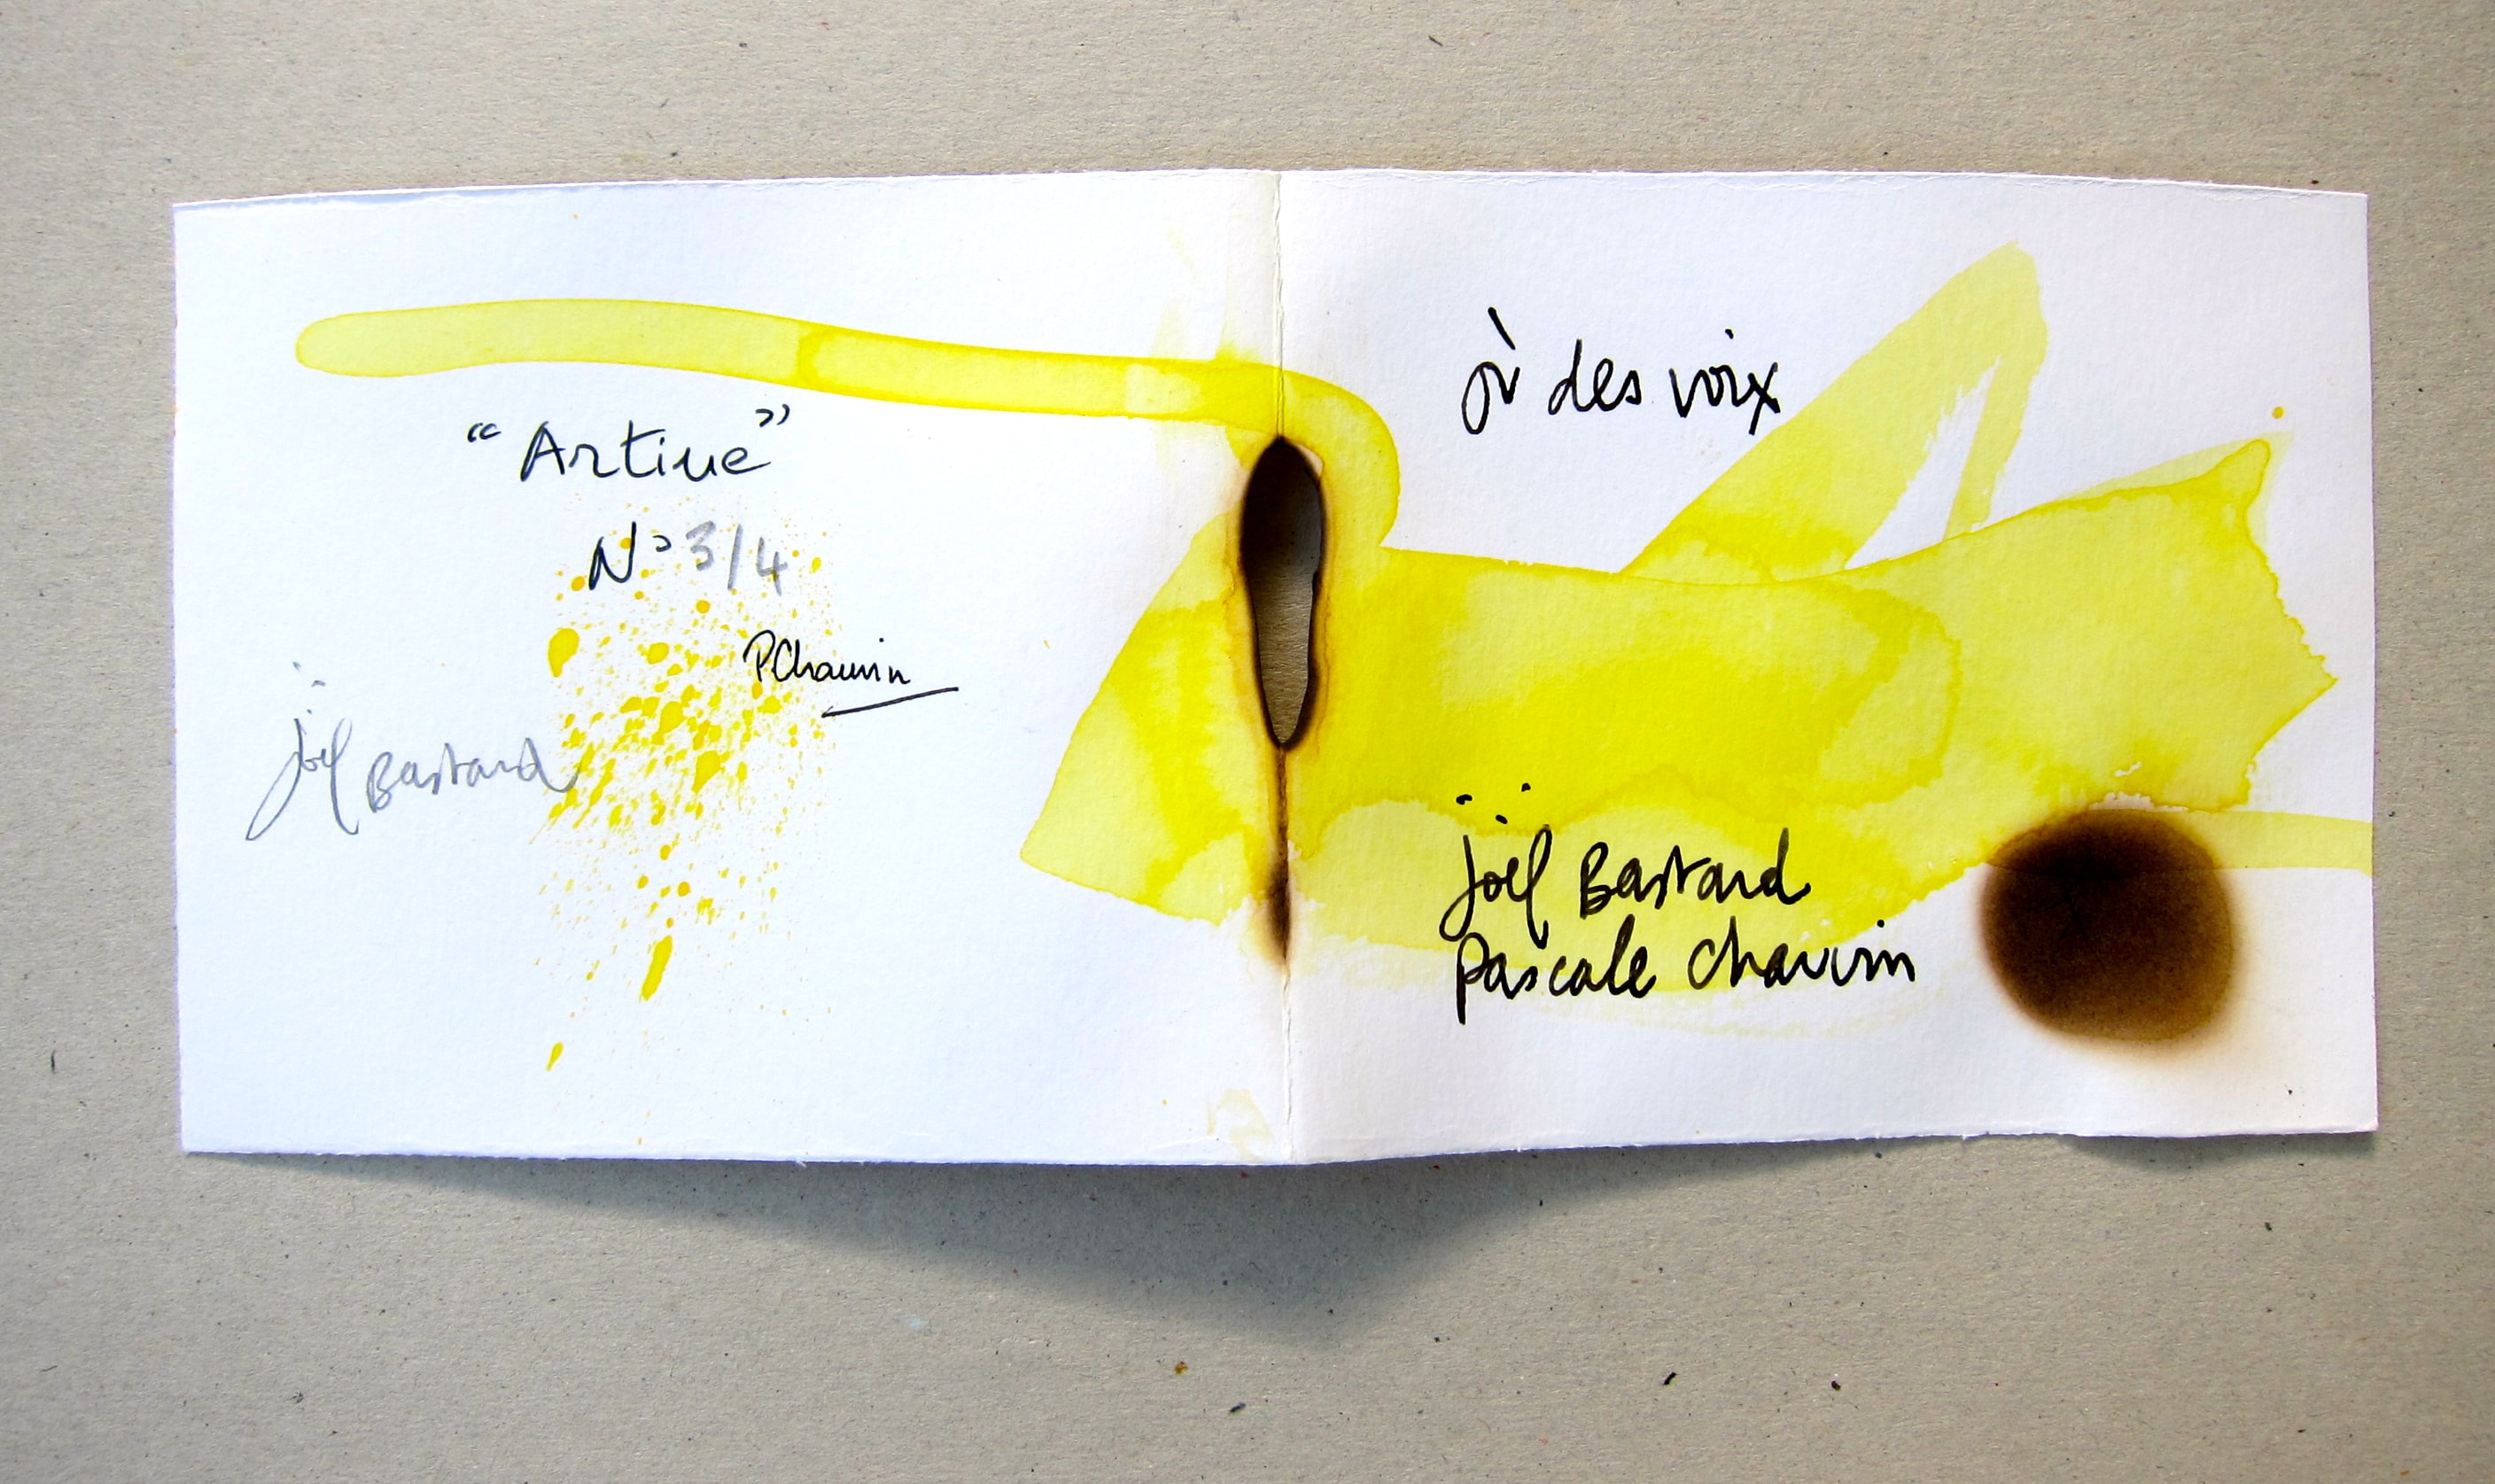 “Artine”
N° 3/4
PChauvin
joël Bastard
où des voix
joël Bastard
pascale chauvin